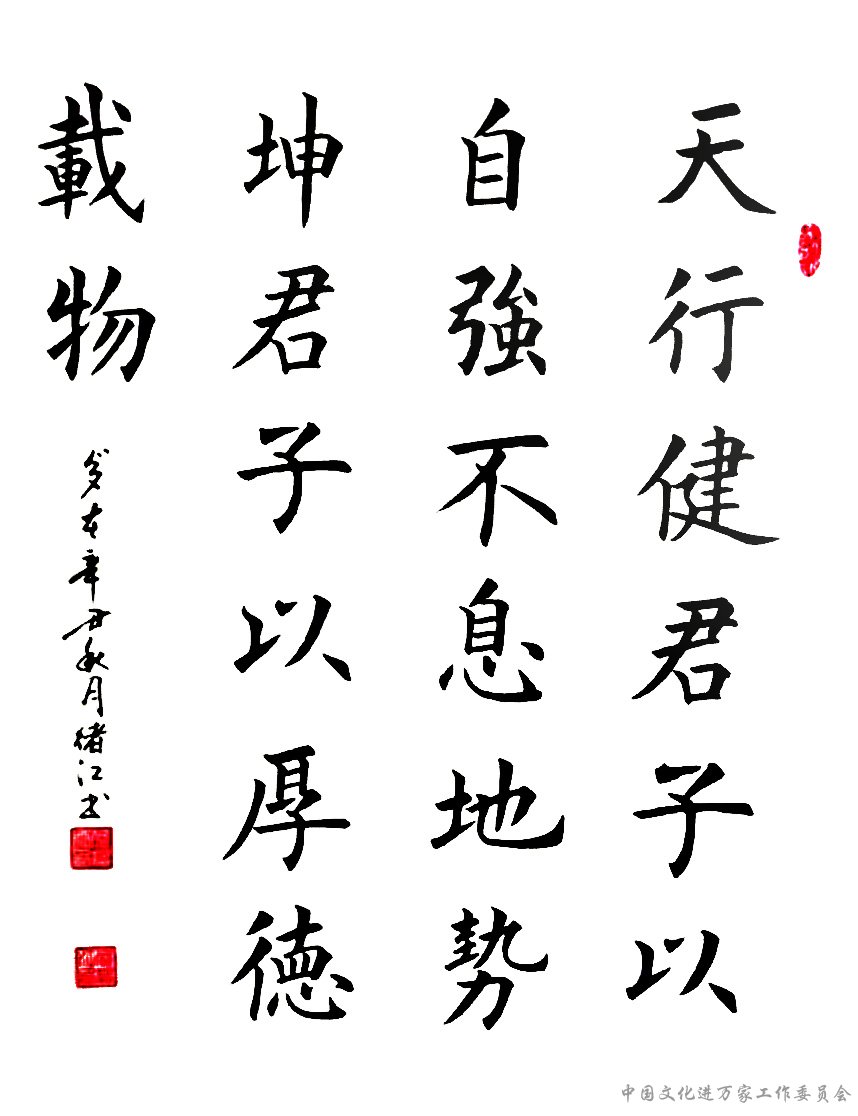 天行健君子以
自強不息地势
坤君子以厚德
載物
岁在辛丑秋月绪江书
中国文化进万家工作委员会